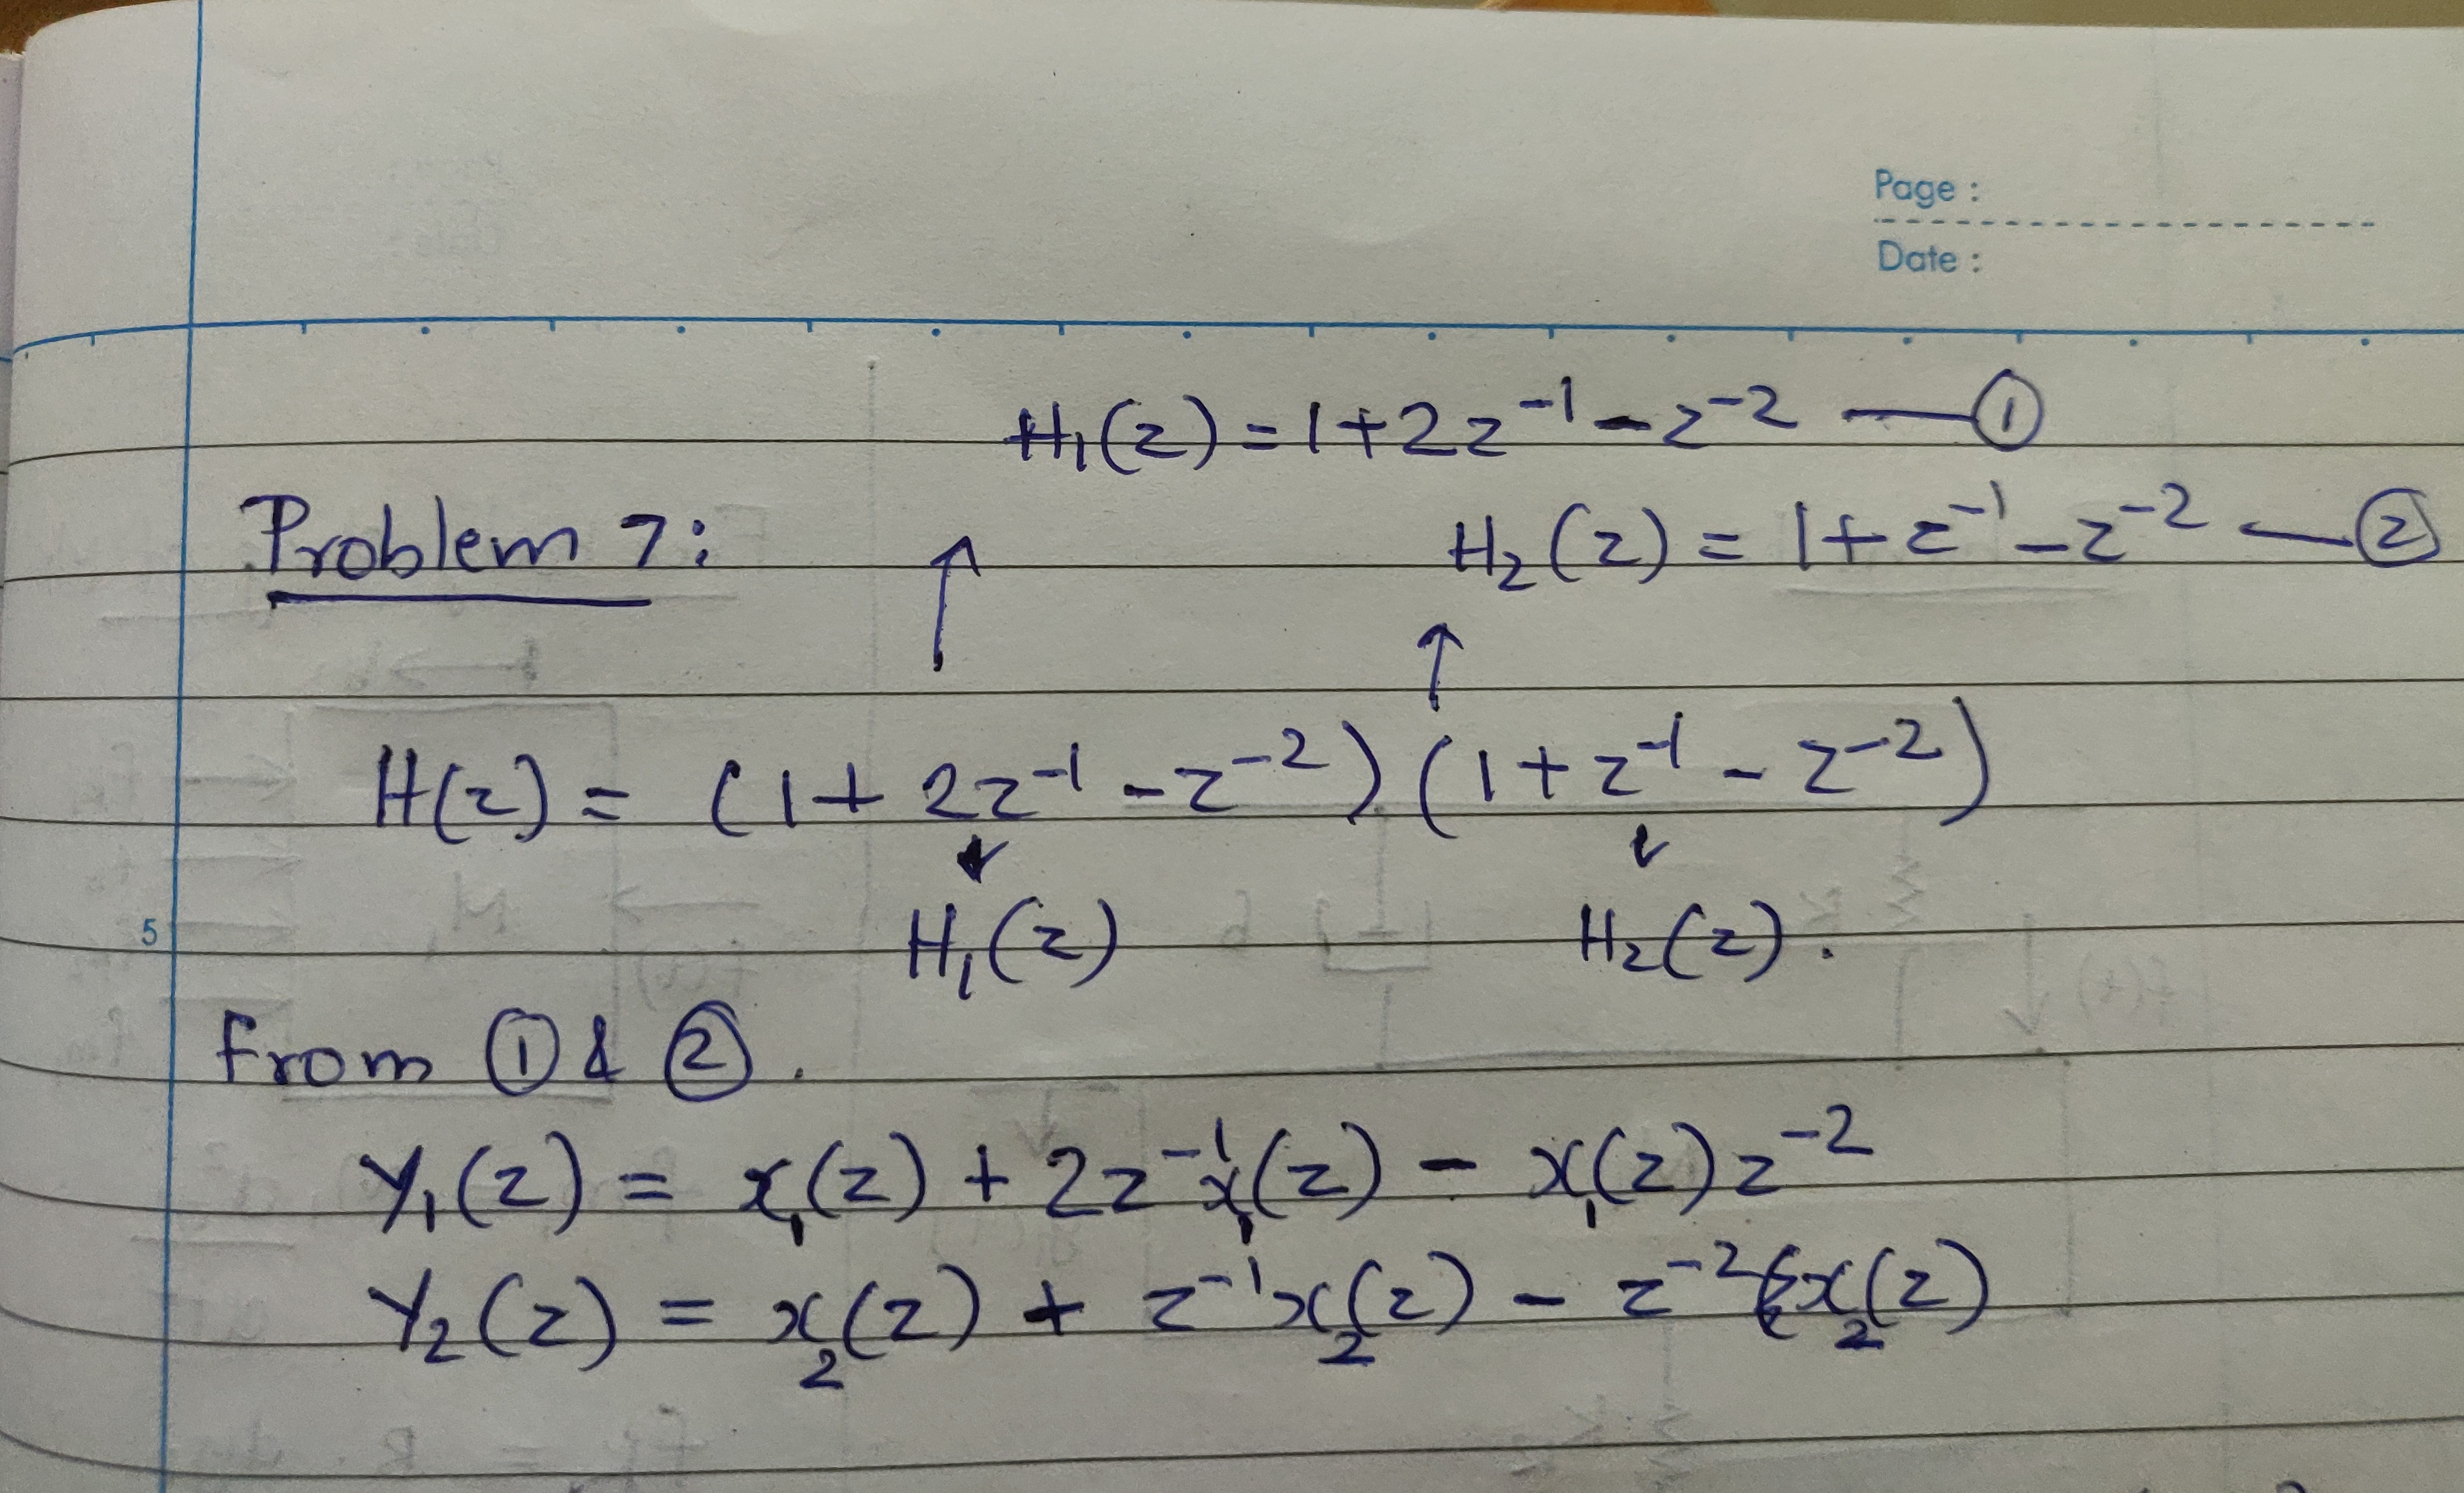 Page :
Date :
H₁(z) = 1 + 2z⁻¹ - z⁻² — ①
Problem 7:
H₂(z) = 1 + z⁻¹ - z⁻² — ②
H(z) = (1 + 2z⁻¹ - z⁻²) (1 + z⁻¹ - z⁻²)
H₁(z) H₂(z).
5
from ① & ②.
Y₁(z) = x₁(z) + 2z⁻¹x₁(z) - x₁(z)z⁻²
Y₂(z) = x₂(z) + z⁻¹x₂(z) - z⁻²x₂(z)